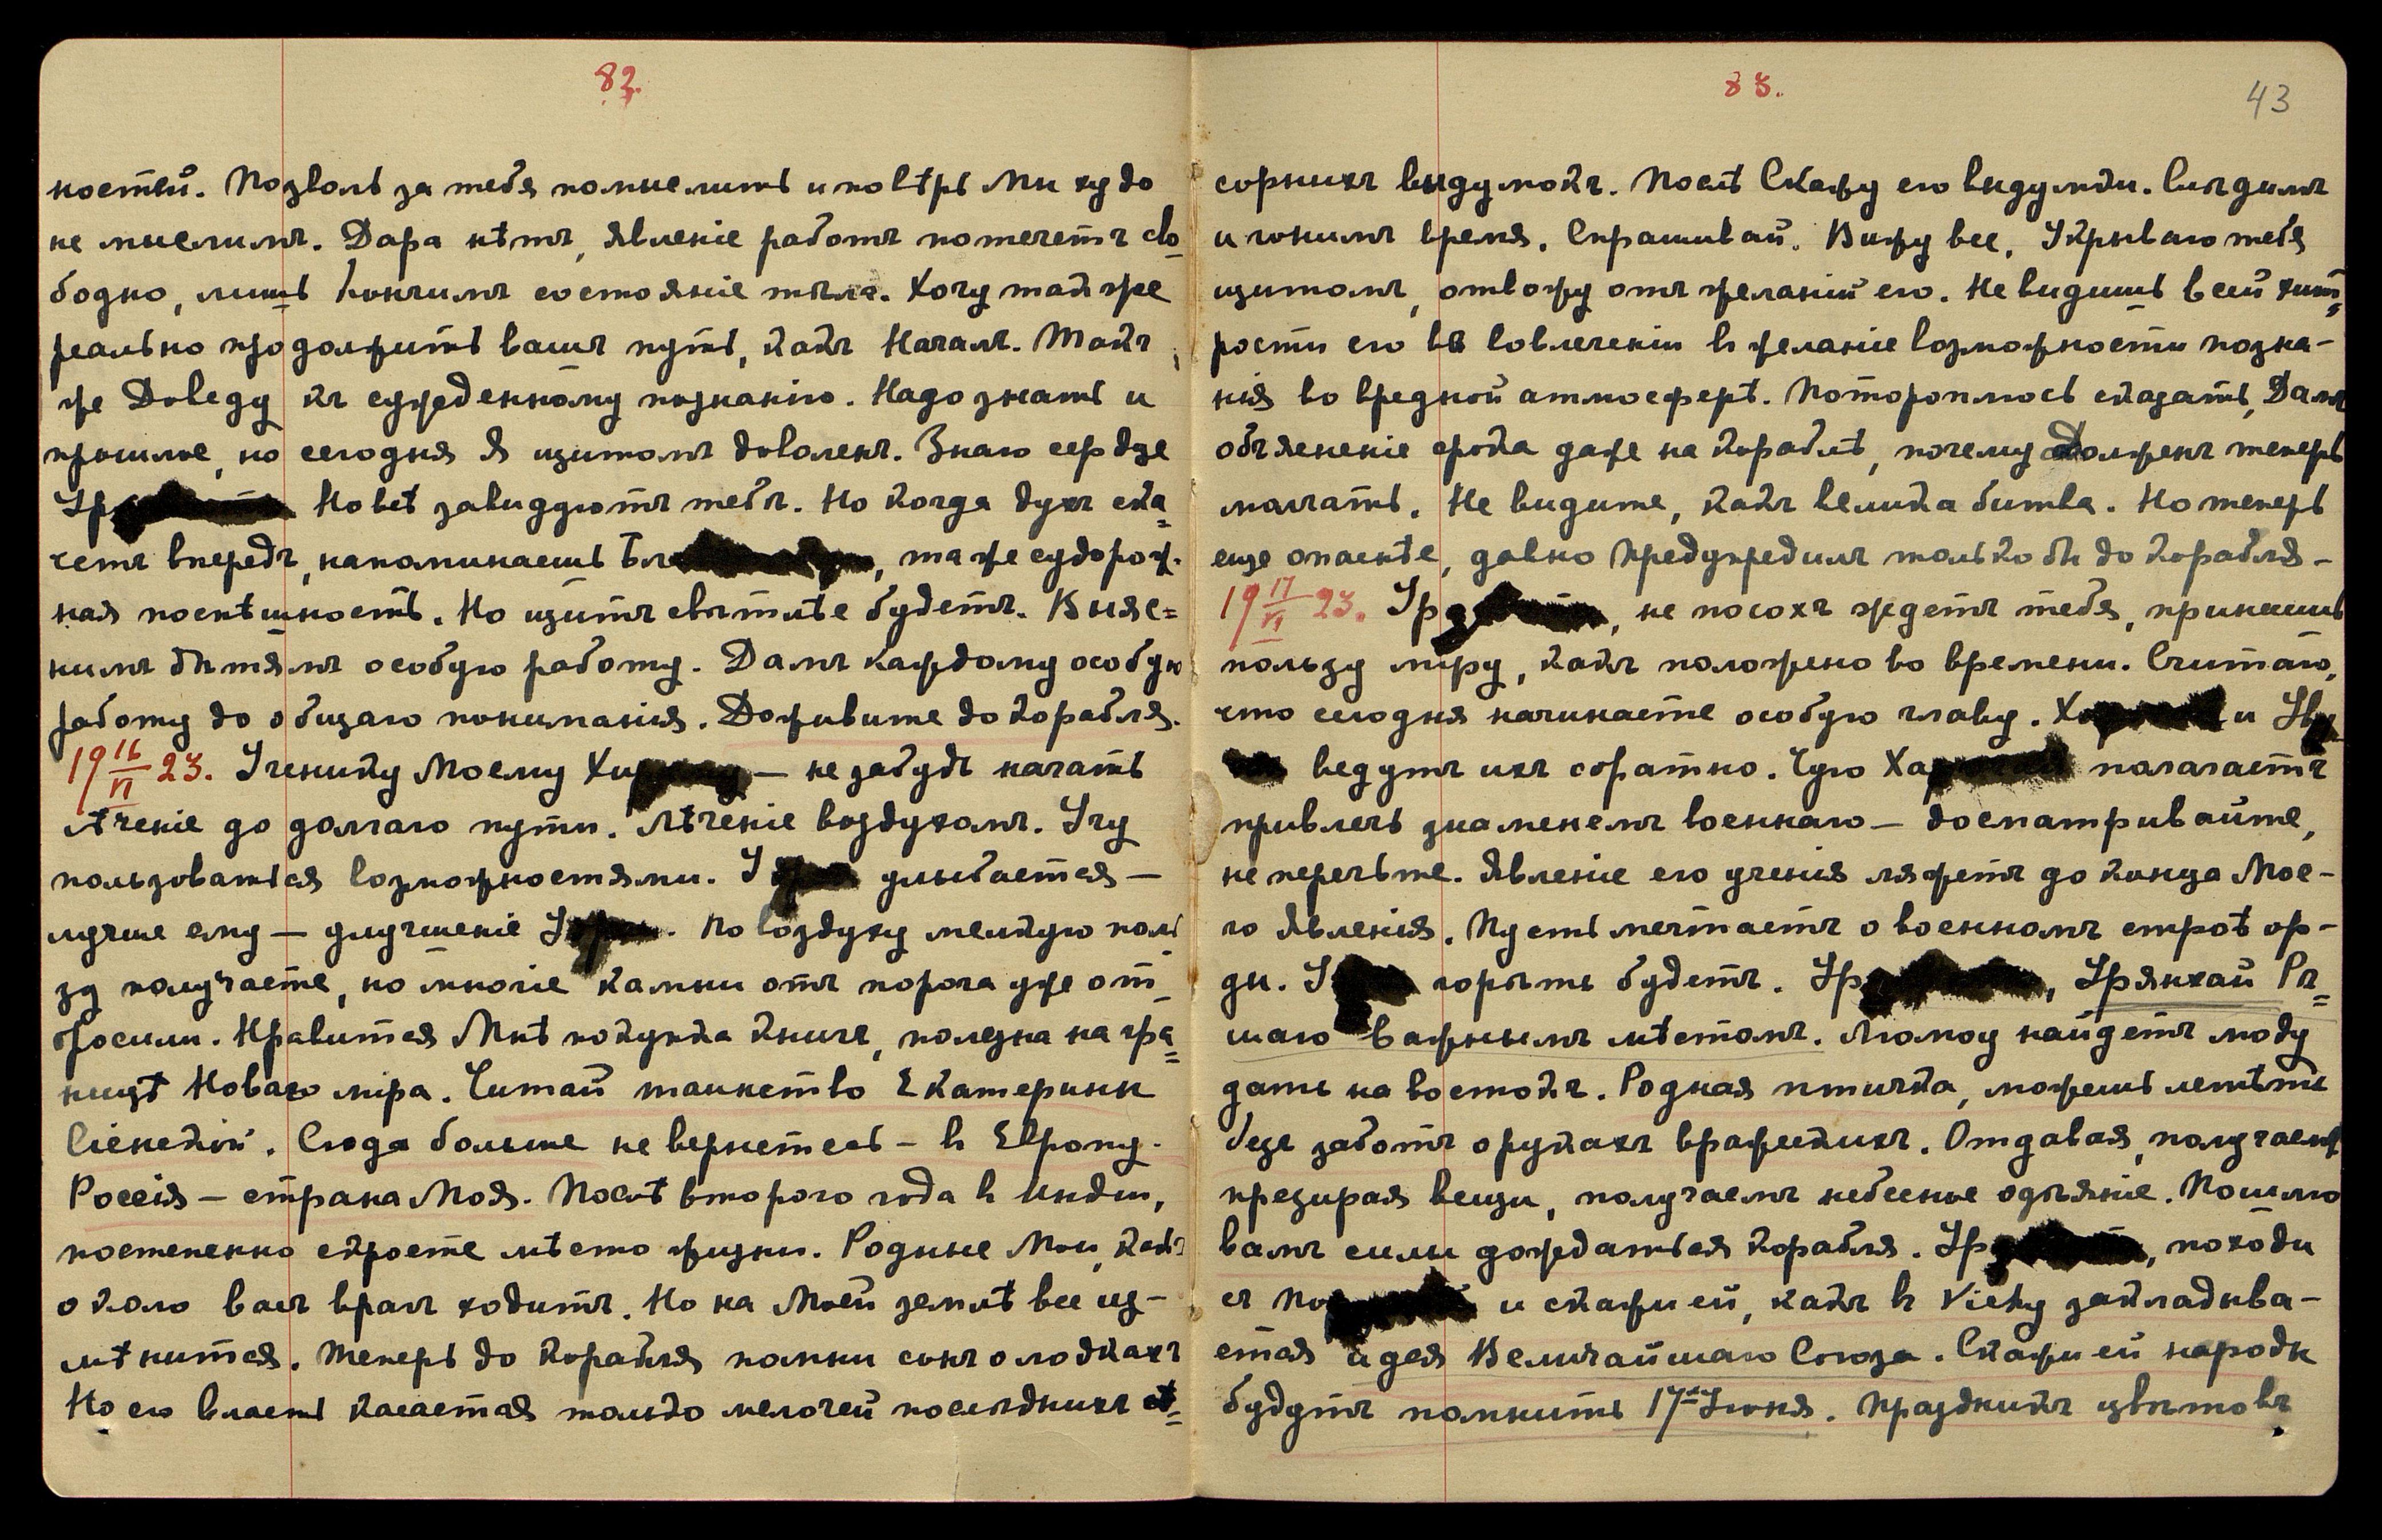 82.
ностей. Позволь за тебя помыслить и повѣрь Мы худо
не мыслимъ. Дара нѣтъ, явленіе работъ потечетъ сво_
бодно, лишь кончимъ состояніе тѣла. Хочу так же
реально продолжить вашъ путь, какъ Началъ. Такъ
же Доведу къ сужденному познанію. Надо знать и
прошлое, но сегодня Я щитомъ доволенъ. Знаю сердце
Ур Но всѣ завидуютъ тебѣ. Но когда духъ ска=
четъ впередъ, напоминаешь Бла, та же судорож-
ная поспѣшность. Но щитъ свѣтлѣе будетъ. Выяс=
нимъ дѣтямъ особую работу. Дамъ каждому особую
работу до общаго пониманія. Доживите до корабля.
19 16/VI 23. Ученику Моему Хи — не забудь начать
лѣченіе до долгаго пути. Лѣченіе воздухомъ. Учу
пользоваться возможностями. У улыбается —
лучше ему — улучшеніе У. По воздуху мелкую поль
зу получаете, но многіе камни отъ порога уже от_
бросили. Нравится Мнѣ покупка книгъ, полезна на гра=
ницѣ Новаго міра. Читай таинство Екатерины
Сіенской. Сюда больше не вернетесь – въ Европу.
Россія – страна Моя. Послѣ второго года въ Индіи,
постепенно скроете мѣсто жизни. Родные Мои, какъ
около васъ врагъ ходитъ. Но на Моей землѣ все из-
мѣнится. Теперь до корабля помни сонъ о лодкахъ
Но его власть касается только мелочей послѣднихъ
83.
43
сорныхъ выдумокъ. Послѣ Скажу его выдумки. Слѣдимъ
и гонимъ время. Спрашивай. Вижу все, Укрываю тебя
щитомъ, отвожу отъ желаній его. Не видишь всей хит=
рости его въ вовлеченіи въ желаніе возможности позна-
нія во вредной атмосферѣ. Потороплюсь сказать, Дамъ
объясненіе срока даже на кораблѣ, почему Долженъ теперь
молчать. Не видите, какъ велика битва. Но теперь
еще опаснѣе, давно предупредилъ только бы до корабля –
19 17/VI 23. Ур, не посохъ ждетъ тебя, принесешь
пользу міру, какъ положено во времени. Считаю,
что сегодня начинаете особую главу. Х и Ув
ведутъ ихъ обратно. Чую Ха полагаетъ
привлечь знаменемъ военнаго — досматривайте,
не перечьте. Явленіе его ученія ляжетъ до конца Мое-
го явленія. Пусть мечтаетъ о военномъ строѣ ор-
ды. У горѣть будетъ. Ур, Урянхай Рѣ=
шаю важнымъ мѣстомъ. Люмоу найдетъ моду
дать на востокъ. Родная птичка, можешь летѣть
безъ заботъ о рукахъ вражескихъ. Отдавая, получаемъ,
презирая вещи, получаемъ небесное одѣяніе. Пошлю
вамъ силы дождаться корабля. Ур, походи
съ По и скажи ей, какъ въ Vichy закладыва-
ется идея Величайшаго Союза. Скажи ей народы
будутъ помнить 17-Іюня. Праздникъ цвѣтовъ